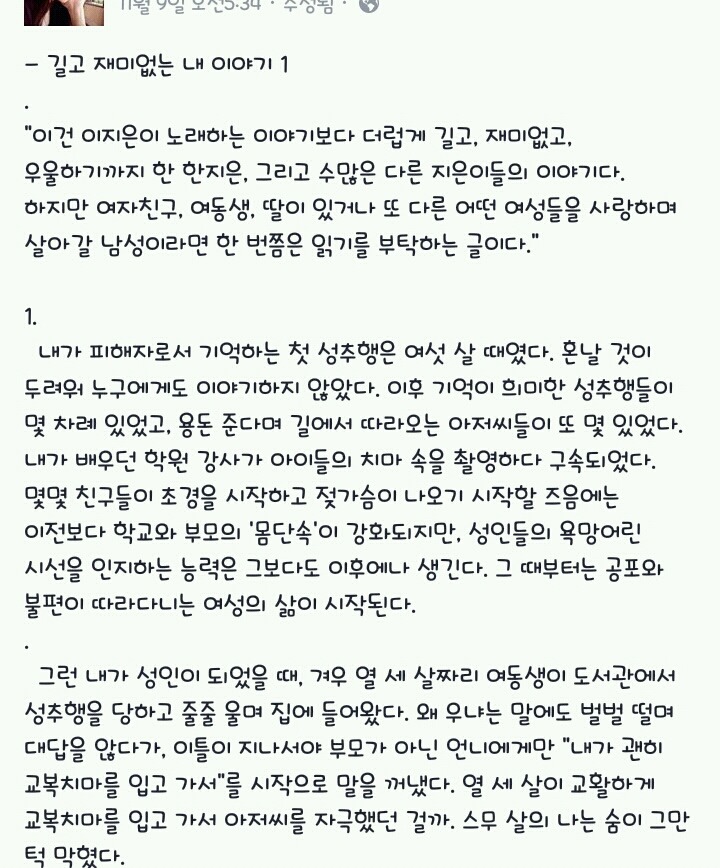 11월 9일 오전5:34 · 수정됨 ·
– 길고 재미없는 내 이야기 1
.
"이건 이지은이 노래하는 이야기보다 더럽게 길고, 재미없고,
우울하기까지 한 한지은, 그리고 수많은 다른 지은이들의 이야기다.
하지만 여자친구, 여동생, 딸이 있거나 또 다른 어떤 여성들을 사랑하며
살아갈 남성이라면 한 번쯤은 읽기를 부탁하는 글이다."
1.
내가 피해자로서 기억하는 첫 성추행은 여섯 살 때였다. 혼날 것이
두려워 누구에게도 이야기하지 않았다. 이후 기억이 희미한 성추행들이
몇 차례 있었고, 용돈 준다며 길에서 따라오는 아저씨들이 또 몇 있었다.
내가 배우던 학원 강사가 아이들의 치마 속을 촬영하다 구속되었다.
몇몇 친구들이 초경을 시작하고 젖가슴이 나오기 시작할 즈음에는
이전보다 학교와 부모의 '몸단속'이 강화되지만, 성인들의 욕망어린
시선을 인지하는 능력은 그보다도 이후에나 생긴다. 그 때부터는 공포와
불편이 따라다니는 여성의 삶이 시작된다.
.
그런 내가 성인이 되었을 때, 겨우 열 세 살짜리 여동생이 도서관에서
성추행을 당하고 줄줄 울며 집에 들어왔다. 왜 우냐는 말에도 벌벌 떨며
대답을 않다가, 이틀이 지나서야 부모가 아닌 언니에게만 "내가 괜히
교복치마를 입고 가서"를 시작으로 말을 꺼냈다. 열 세 살이 교활하게
교복치마를 입고 가서 아저씨를 자극했던 걸까. 스무 살의 나는 숨이 그만
턱 막혔다.